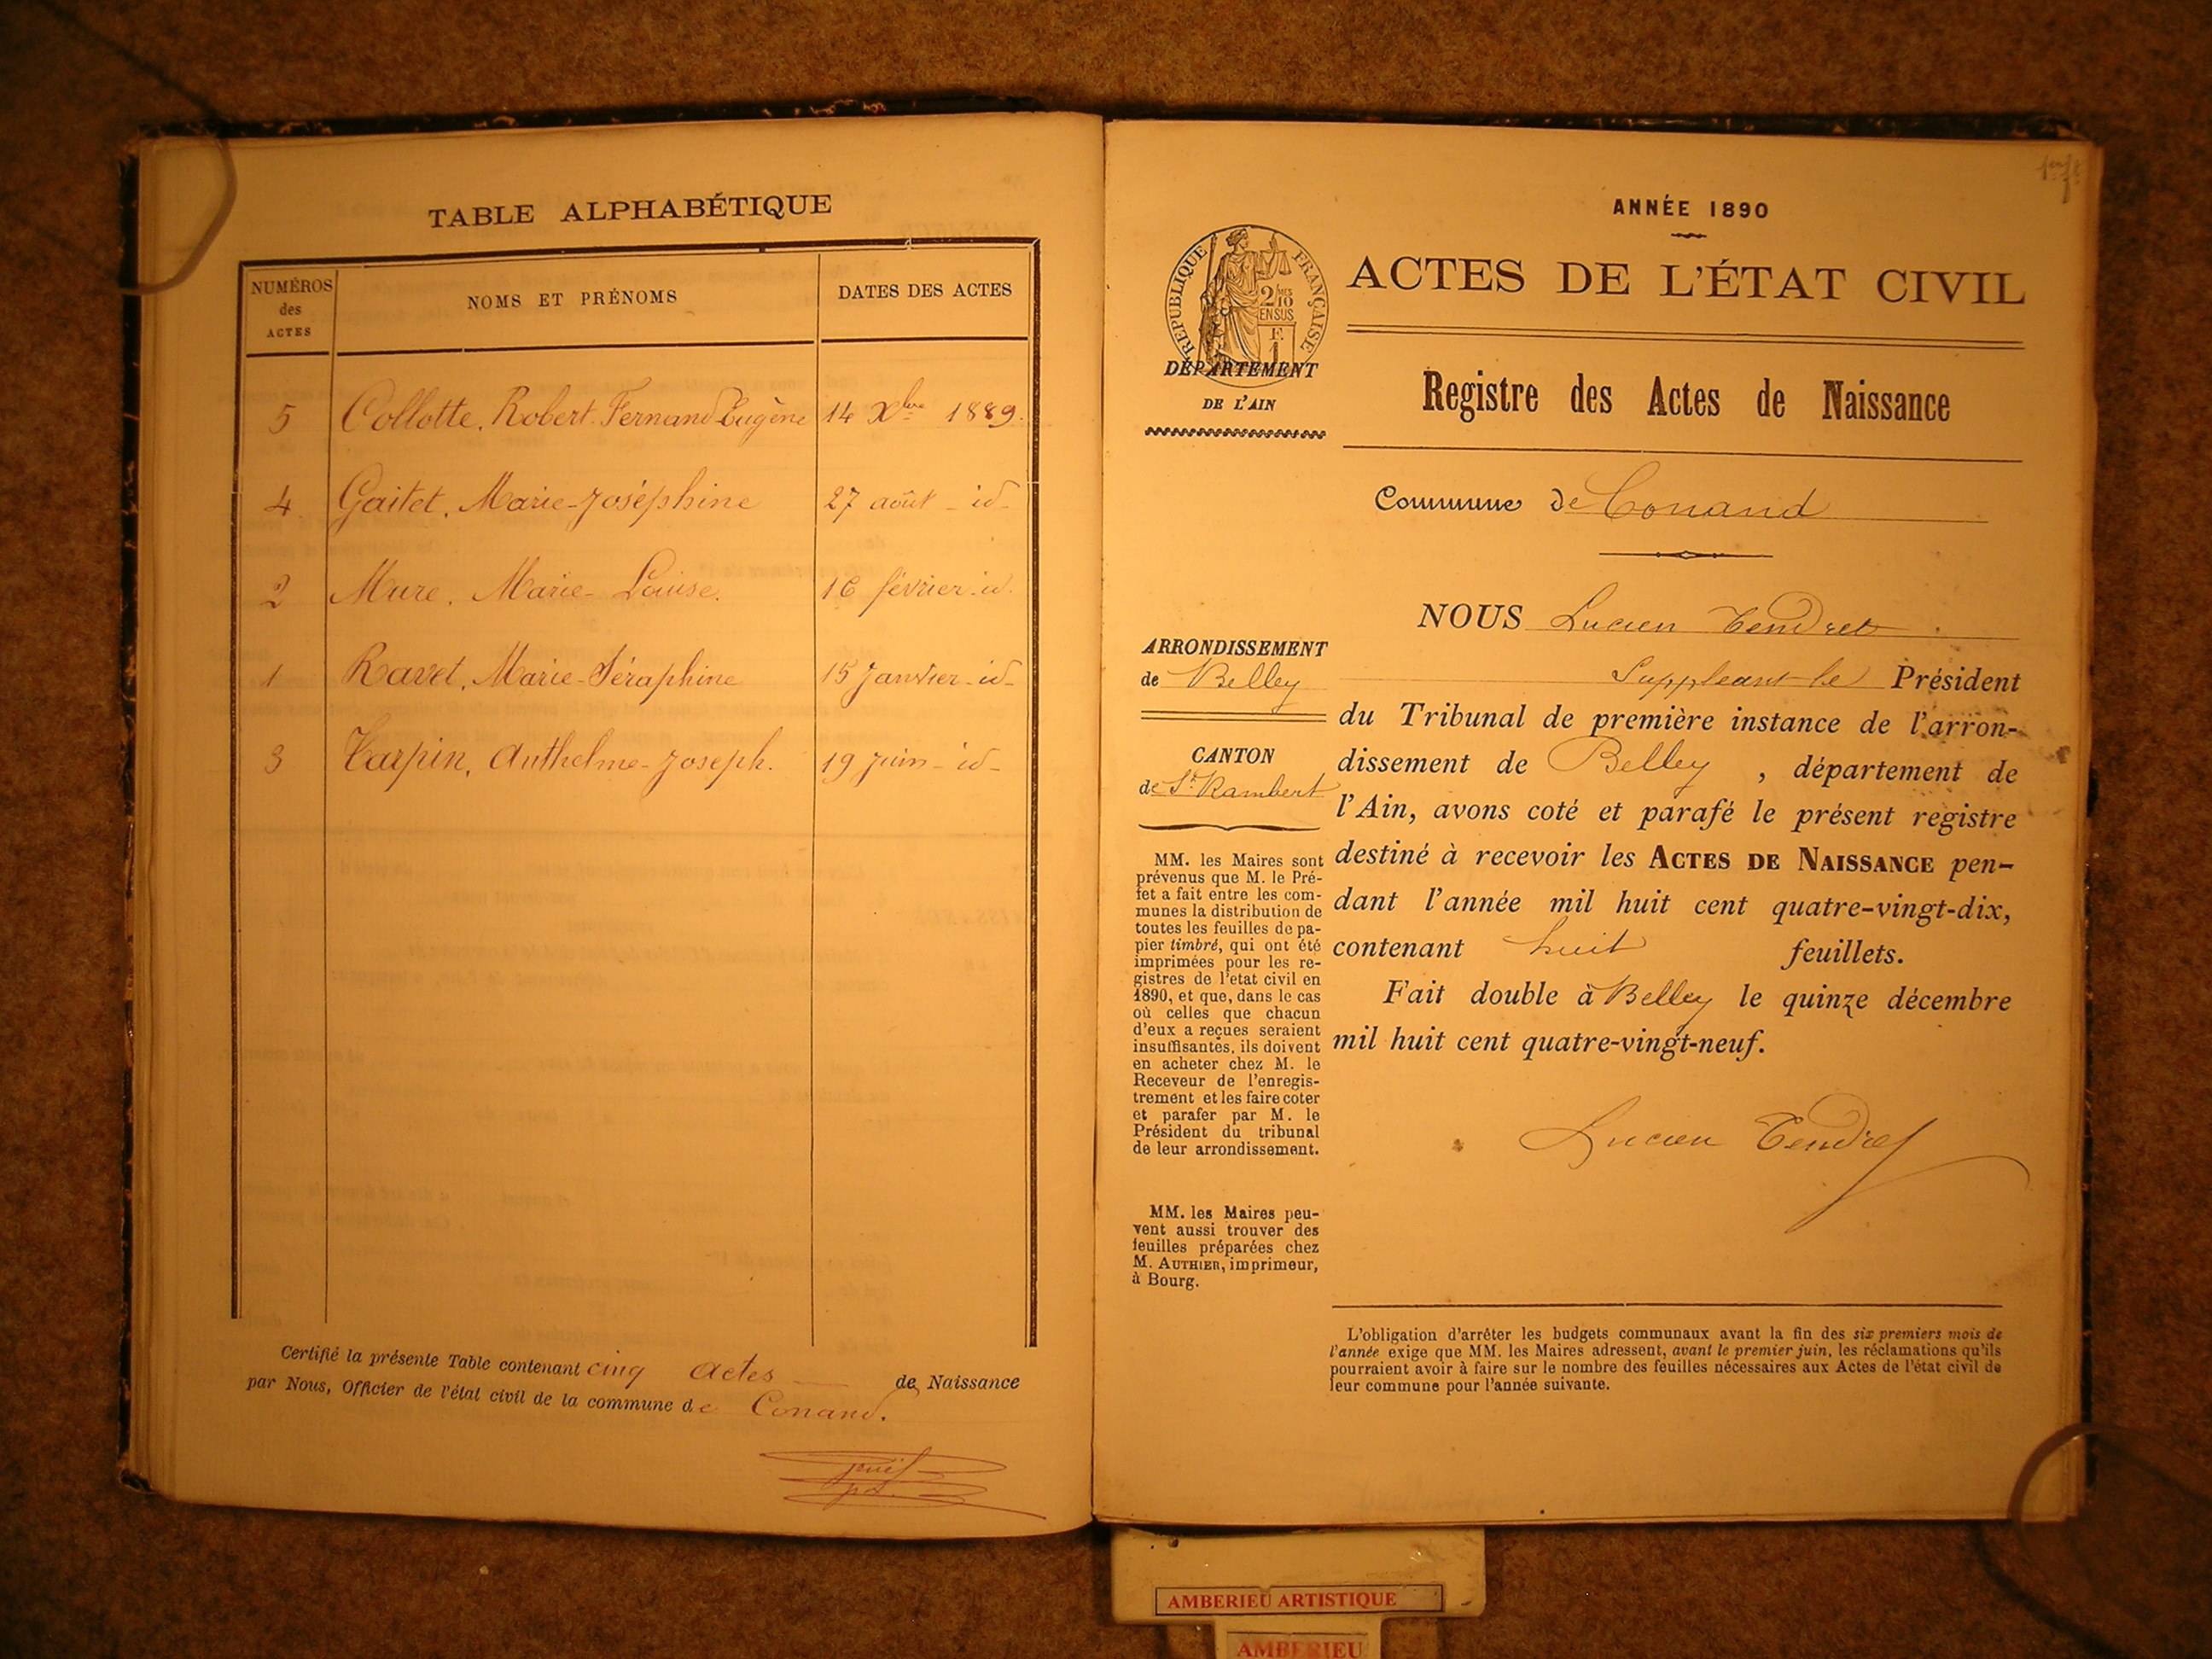 TABLE ALPHABÉTIQUE
NUMÉROS
des
ACTES
NOMS ET PRÉNOMS
DATES DES ACTES
5 Collotte, Robert Fernand Eugène 14 Xbre 1889.
4 Gaitet, Marie-Joséphine 27 août - id-
2 Mure, Marie-Louise. 16 février-id.
1 Ravet, Marie-Séraphine 15 Janvier-id-
3 Tarpin, Anthelme-Joseph. 19 juin-id-
Certifié la présente Table contenant cinq actes de Naissance
par Nous, Officier de l'état civil de la commune de Conand.
ANNÉE 1890
RÉPUBLIQUE FRANÇAISE
2/10
EN SUS
F.
1
ACTES DE L'ÉTAT CIVIL
DÉPARTEMENT
DE L'AIN
Registre des Actes de Naissance
Commune de Conand
NOUS Lucien Tendret
Suppléant le Président
du Tribunal de première instance de l'arron-
dissement de Belley, département de
l'Ain, avons coté et parafé le présent registre
destiné à recevoir les ACTES DE NAISSANCE pen-
dant l'année mil huit cent quatre-vingt-dix,
contenant huit feuillets.
Fait double à Belley le quinze décembre
mil huit cent quatre-vingt-neuf.
Lucien Tendret
ARRONDISSEMENT
de Belley
CANTON
de St. Rambert
MM. les Maires sont
prévenus que M. le Pré-
fet a fait entre les com-
munes la distribution de
toutes les feuilles de pa-
pier timbré, qui ont été
imprimées pour les re-
gistres de l'etat civil en
1890, et que, dans le cas
où celles que chacun
d'eux a reçues seraient
insuffisantes, ils doivent
en acheter chez M. le
Receveur de l'enregis-
trement et les faire coter
et parafer par M. le
Président du tribunal
de leur arrondissement.
MM. les Maires peu-
vent aussi trouver des
feuilles préparées chez
M. AUTHIER, imprimeur,
à Bourg.
L'obligation d'arrêter les budgets communaux avant la fin des six premiers mois de
l'année exige que MM. les Maires adressent, avant le premier juin, les réclamations qu'ils
pourraient avoir à faire sur le nombre des feuilles nécessaires aux Actes de l'état civil de
leur commune pour l'année suivante.
AMBERIEU ARTISTIQUE
AMBERIEU